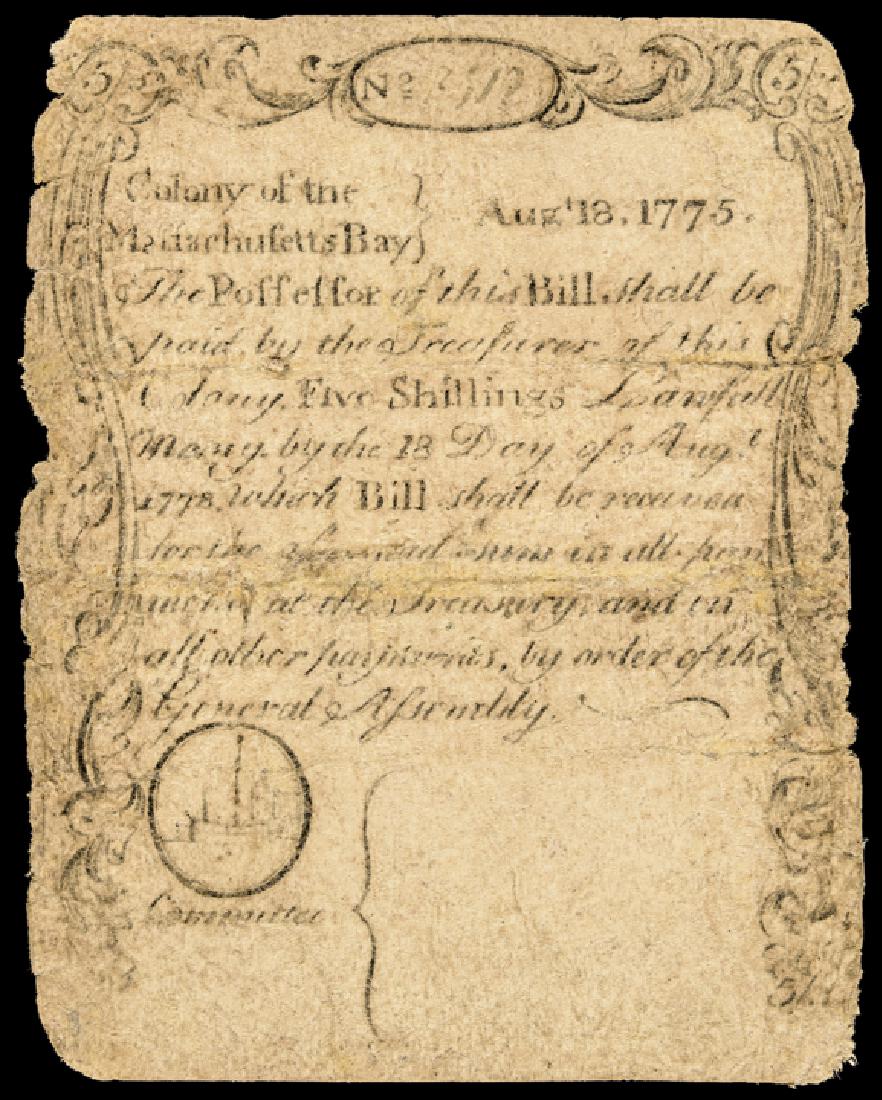 5/ No 5/
Colony of the
Massachusetts Bay } Augt 18, 1775.
The Possessor of this Bill shall be
paid by the Treasurer of this
Colony, Five Shillings Lawfull
Mony, by the 18 Day of Augt
1778 Which Bill shall be received
for the aforesaid sum in all pay
ments, at the Treasury, and in
all other payments, by order of the
General Assembly.
Committee
5/